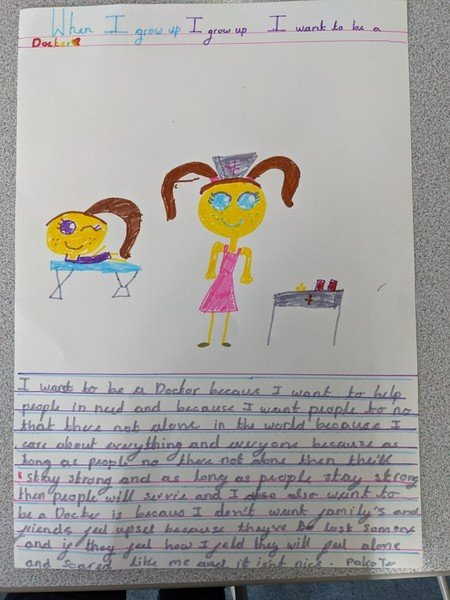 When I grow up I grow up I want to be a
Docter
I want to be a Doctor becaus I want to help
people in need and because I want people to no
that there not alone in the world because I
care about everything and everyone because as
long as people no there not alone then they'll
stay strong and as long as people stay strong
then people will servie and I also also want to
be a Docter is becaus I don't want family's and
friends feel upset because they've lost someone
and if they feel how I feld they will feel alone
and scared like me and it isnt nice.